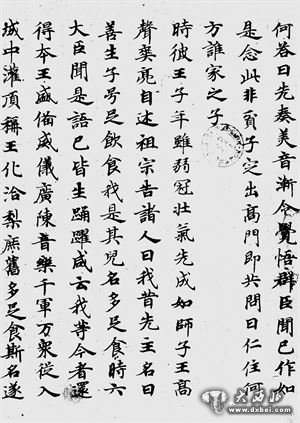 何答曰先奏美音漸令覺悟群臣聞已作如
是念此非貧子定出高門即共問曰仁住何
方誰家之子
時彼王子年雖弱冠壯氣先成如師子王高
聲美亮自述祖宗告諸人曰我昔先主名曰
善生子号足飲食我是其兒名多足食時六
大臣聞是語已皆生踊躍咸云我等今者還
得本王盛備威儀廣陳音樂千軍万衆從入
城中灌頂稱王化洽黎庶舊多足食斯名遂
大西北
www.dxbei.com